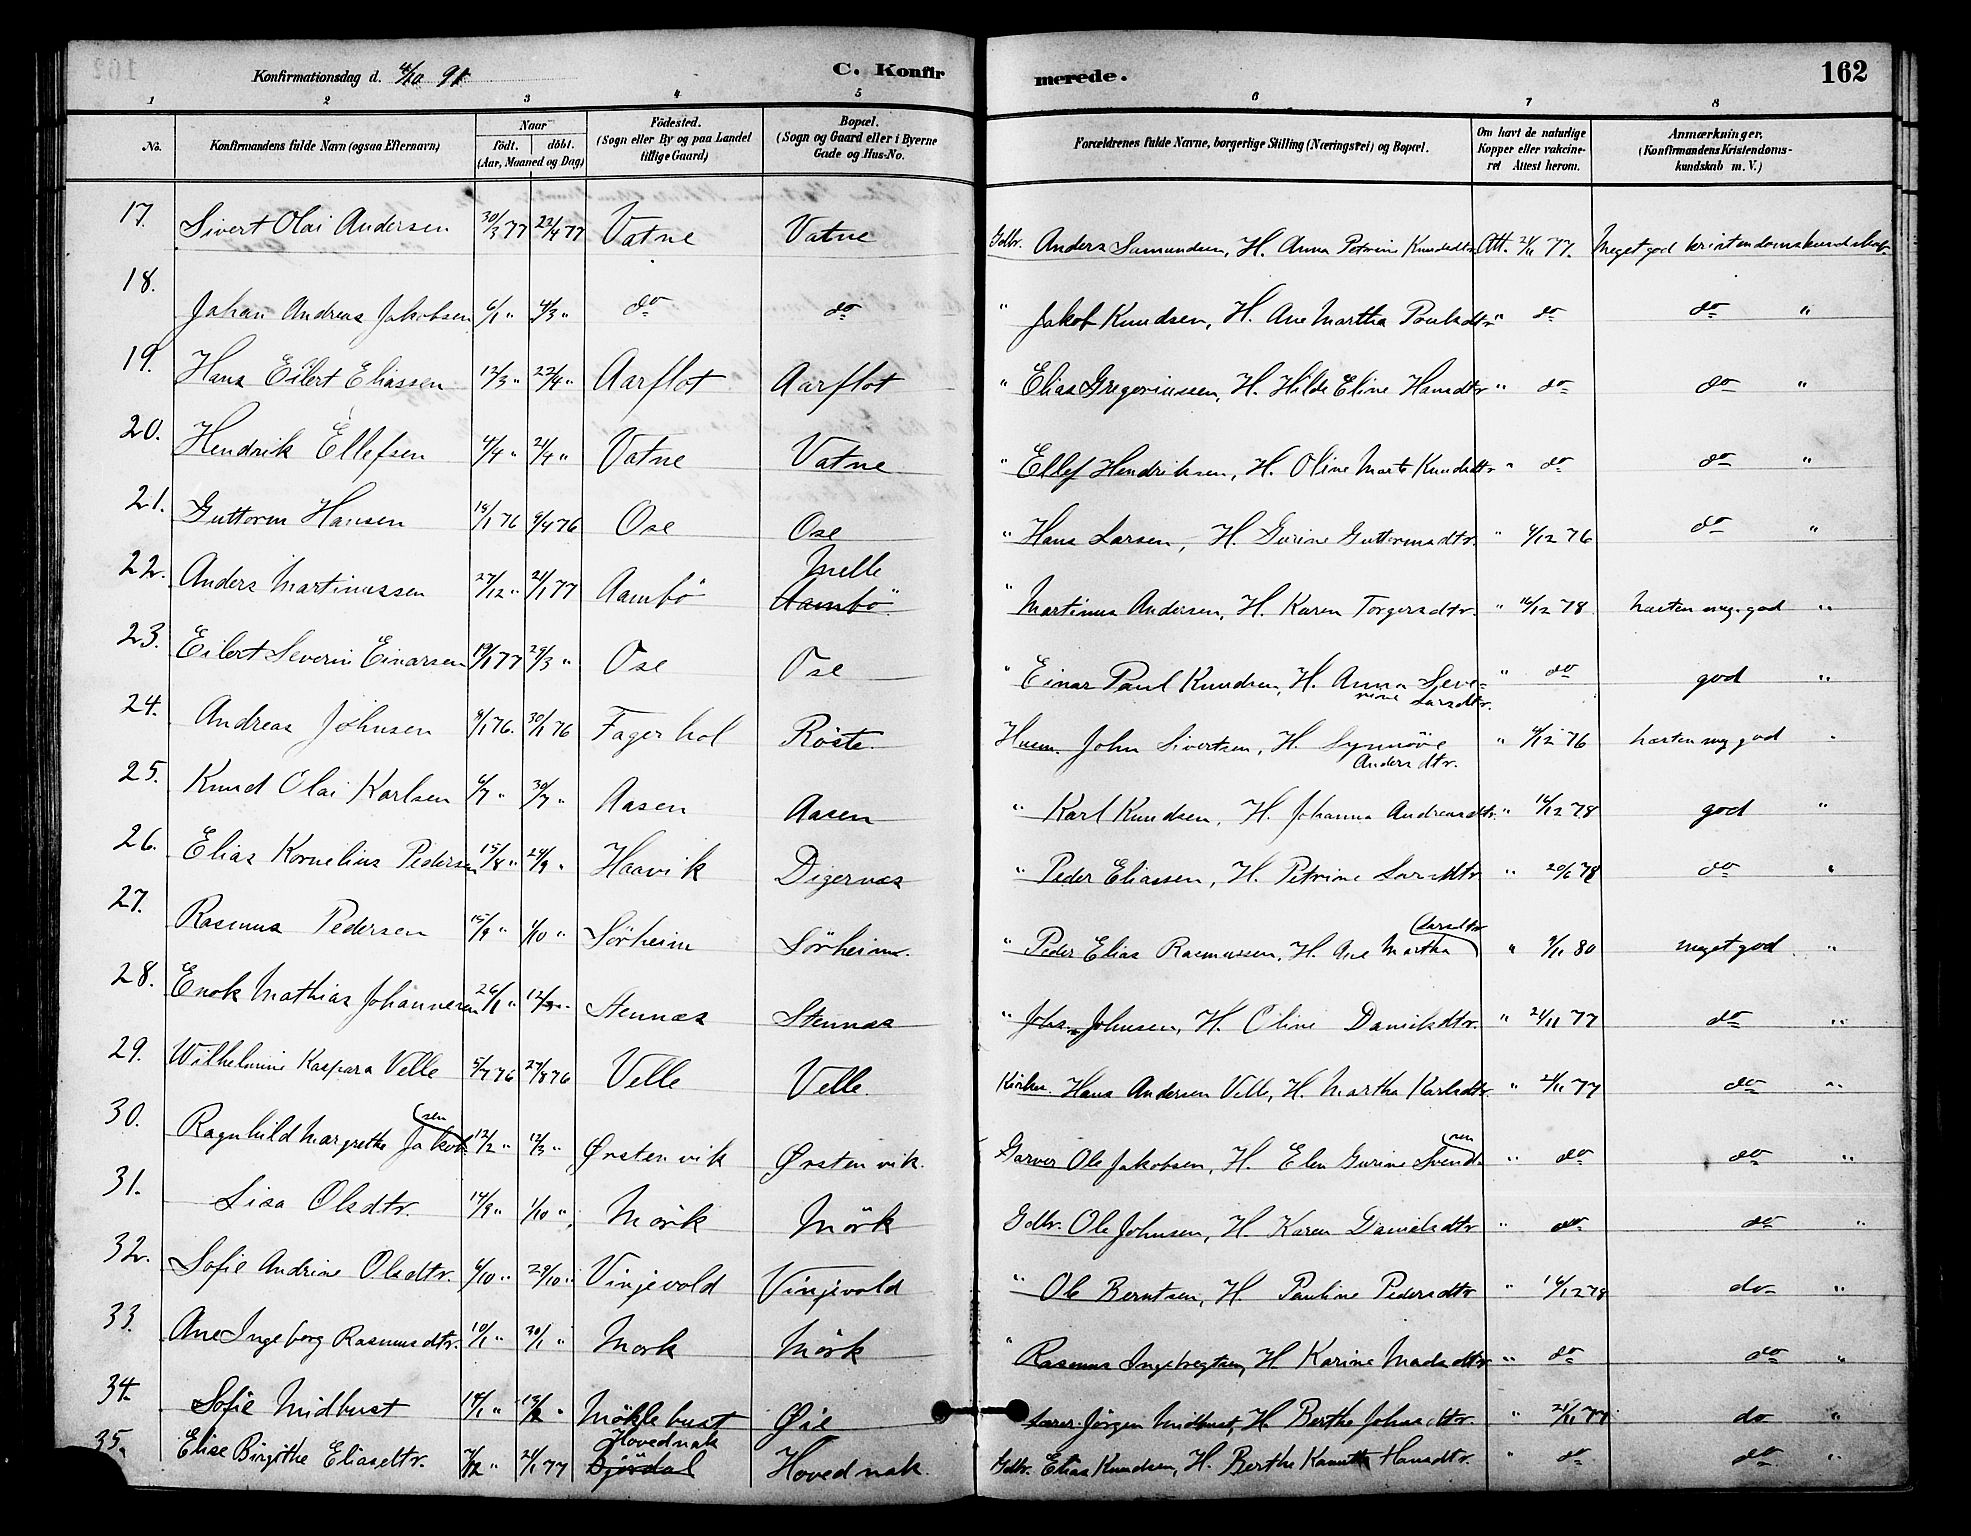 Konfirmationsdag d. 4/10 91. C. Konfirmerede. 162
1 2 3 4 5 6 7 8
No. Konfirmandens fulde Navn (ogsaa Efternavn) Naar födt. döbt. (Aar, Maaned og Dag) Födested. (Sogn eller By og paa Landet tillige Gaard) Bopæl. (Sogn og Gaard eller i Byerne Gade og Hus-No. Forældrenes fulde Navne, borgerlige Stilling (Næringsvei) og Bopæl. Om havt de naturlige Kopper eller vakcineret Attest herom. Anmærkninger. (Konfirmandens Kristendomskundskab m. V.)
17. Sivert Olai Andersen 30/3 77 22/4 77 Vatne Vatne Gdbr. Anders Samundsen, H. Anna Petrine Knudsdtr. Att. 21/11 77. Meget god kristendomskundskab.
18. Johan Andreas Jakobsen 6/1 " 4/3 " do do " Jakob Knudsen, H. Ane Martha Poulsdtr " do do "
19. Hans Eilert Eliassen 12/3 " 22/4 " Aarflot Aarflot " Elias Gregoriussen, H. Hilde Eline Hansdtr " do do "
20. Hendrik Ellefsen 4/4 " 21/4 " Vatne Vatne " Ellef Hendriksen, H. Oline Marte Knudsdtr " do do "
21. Guttorm Hansen 19/1 76 9/4 76 Ose Ose " Hans Larsen, H. Gurine Guttormsdtr. " 6/12 76 do "
22. Anders Martinussen 27/12 " 21/1 77 Aambö Melle Aambö " Martinus Andersen, H. Karen Torgersdtr. " 16/12 78 næsten meg. god "
23. Eilert Severin Einarsen 19/1 77 29/3 " Ose Ose " Einar Paul Knudsen, H. Anna Severine Larsdtr. " do god "
24. Andreas Johnsen 9/1 76. 30/1 76 Fagerhol Röste Husm. John Sivertsen, H. Synnöve Andersdtr. " 6/12 76 næsten meg god "
25. Knud Olai Karlsen 6/7 " 30/7 " Aasen Aasen " Karl Knudsen, H. Johanna Andreasdtr. " 16/12 78 god "
26. Elias Kornelius Pedersen 15/8 " 24/9 " Haavik Digernæs " Peder Eliassen, H. Petrine Larsdtr " 20/6 78 do "
27. Rasmus Pedersen 15/9 " 1/10 " Sörheim Sörheim. " Peder Elias Rasmussen, H. Ane Martha Larsdtr " 9/11 80 meget god "
28. Enok Mathias Johannesen 26/1 " 12/3 " Stennæs Stennæs " Johs. Johnsen, H. Oline Danielsdtr. " 24/11 77 do "
29. Wilhelmine Kaspara Velle 5/7 76 27/8 76 Velle Velle. Kirkes. Hans Andersen Velle, H. Martha Karlsdtr. " 2/11 77 do "
30. Ragnhild Margrethe Jakobsen 12/2 " 12/3 " Ørstenvik Ørstenvik. Garver Ole Jakobsen, H. Elen Gurine Svendsen " do do "
31. Lisa Olsdtr. 14/9 " 1/10 " Mörk Mörk Gdbr. Ole Johnsen, H. Karen Danielsdtr " do do "
32. Sofie Andrine Olsdtr. 6/10 " 29/10 " Vinjevold Vinjevold " Ole Berntsen, H. Pauline Pedersdtr " 16/12 78 do "
33. Ane Ingeborg Rasmusdtr. 10/1 " 30/1 " Mork Mörk " Rasmus Ingebregtsen, H Karine Madsdtr " do do "
34. Sofie Midbust 14/1 " 13/2 " Möklebust Øie Lærer Jörgen Midbust, H. Berthe Johnsdtr. " 21/11 77 do "
35. Elise Birgithe Eliasdtr. 7/12 " 21/1 77 Hovednak Björdal Hovednak. Gdbr. Elias Knudsen, H. Berthe Kanutte Hansdtr. " do do "